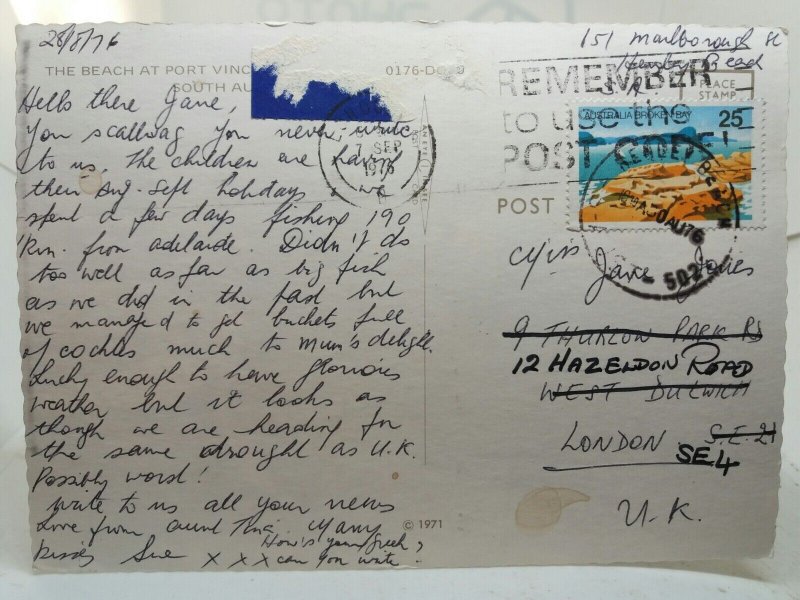 28/8/76
THE BEACH AT PORT VINC
SOUTH AU
0176-D
Hello there Jane,
You scallwag you never write
to us. The children are having
their Aug-Sept holidays we
spent a few days fishing 190
Km. from adelaide. Didn't do
too well as far as big fish
as we did in the past but
we managed to get buckets full
of cockles much to Mum's delight.
Lucky enough to have glorious
weather but it looks as
though we are heading for
the same drought as U.K.
Possibly worst!
Write to us all your news
Love from Aunt Tina. Many
Kisses Sue x x x
How's your Greek,
can you write.
© 1971
151 Marlborough St
Henley Beach
S.A.
REMEMBER
to use the
POST CODE!
PLACE
STAMP
AUSTRALIA BROKEN BAY
25
7 SEP
1976
HENLEY BEACH
30AU76
502
POST
Miss
Jane Jones
9 THURLOW PARK RD
12 HAZELDON ROAD
WEST DULWICH
LONDON S.E. 21
SE4
U.K.